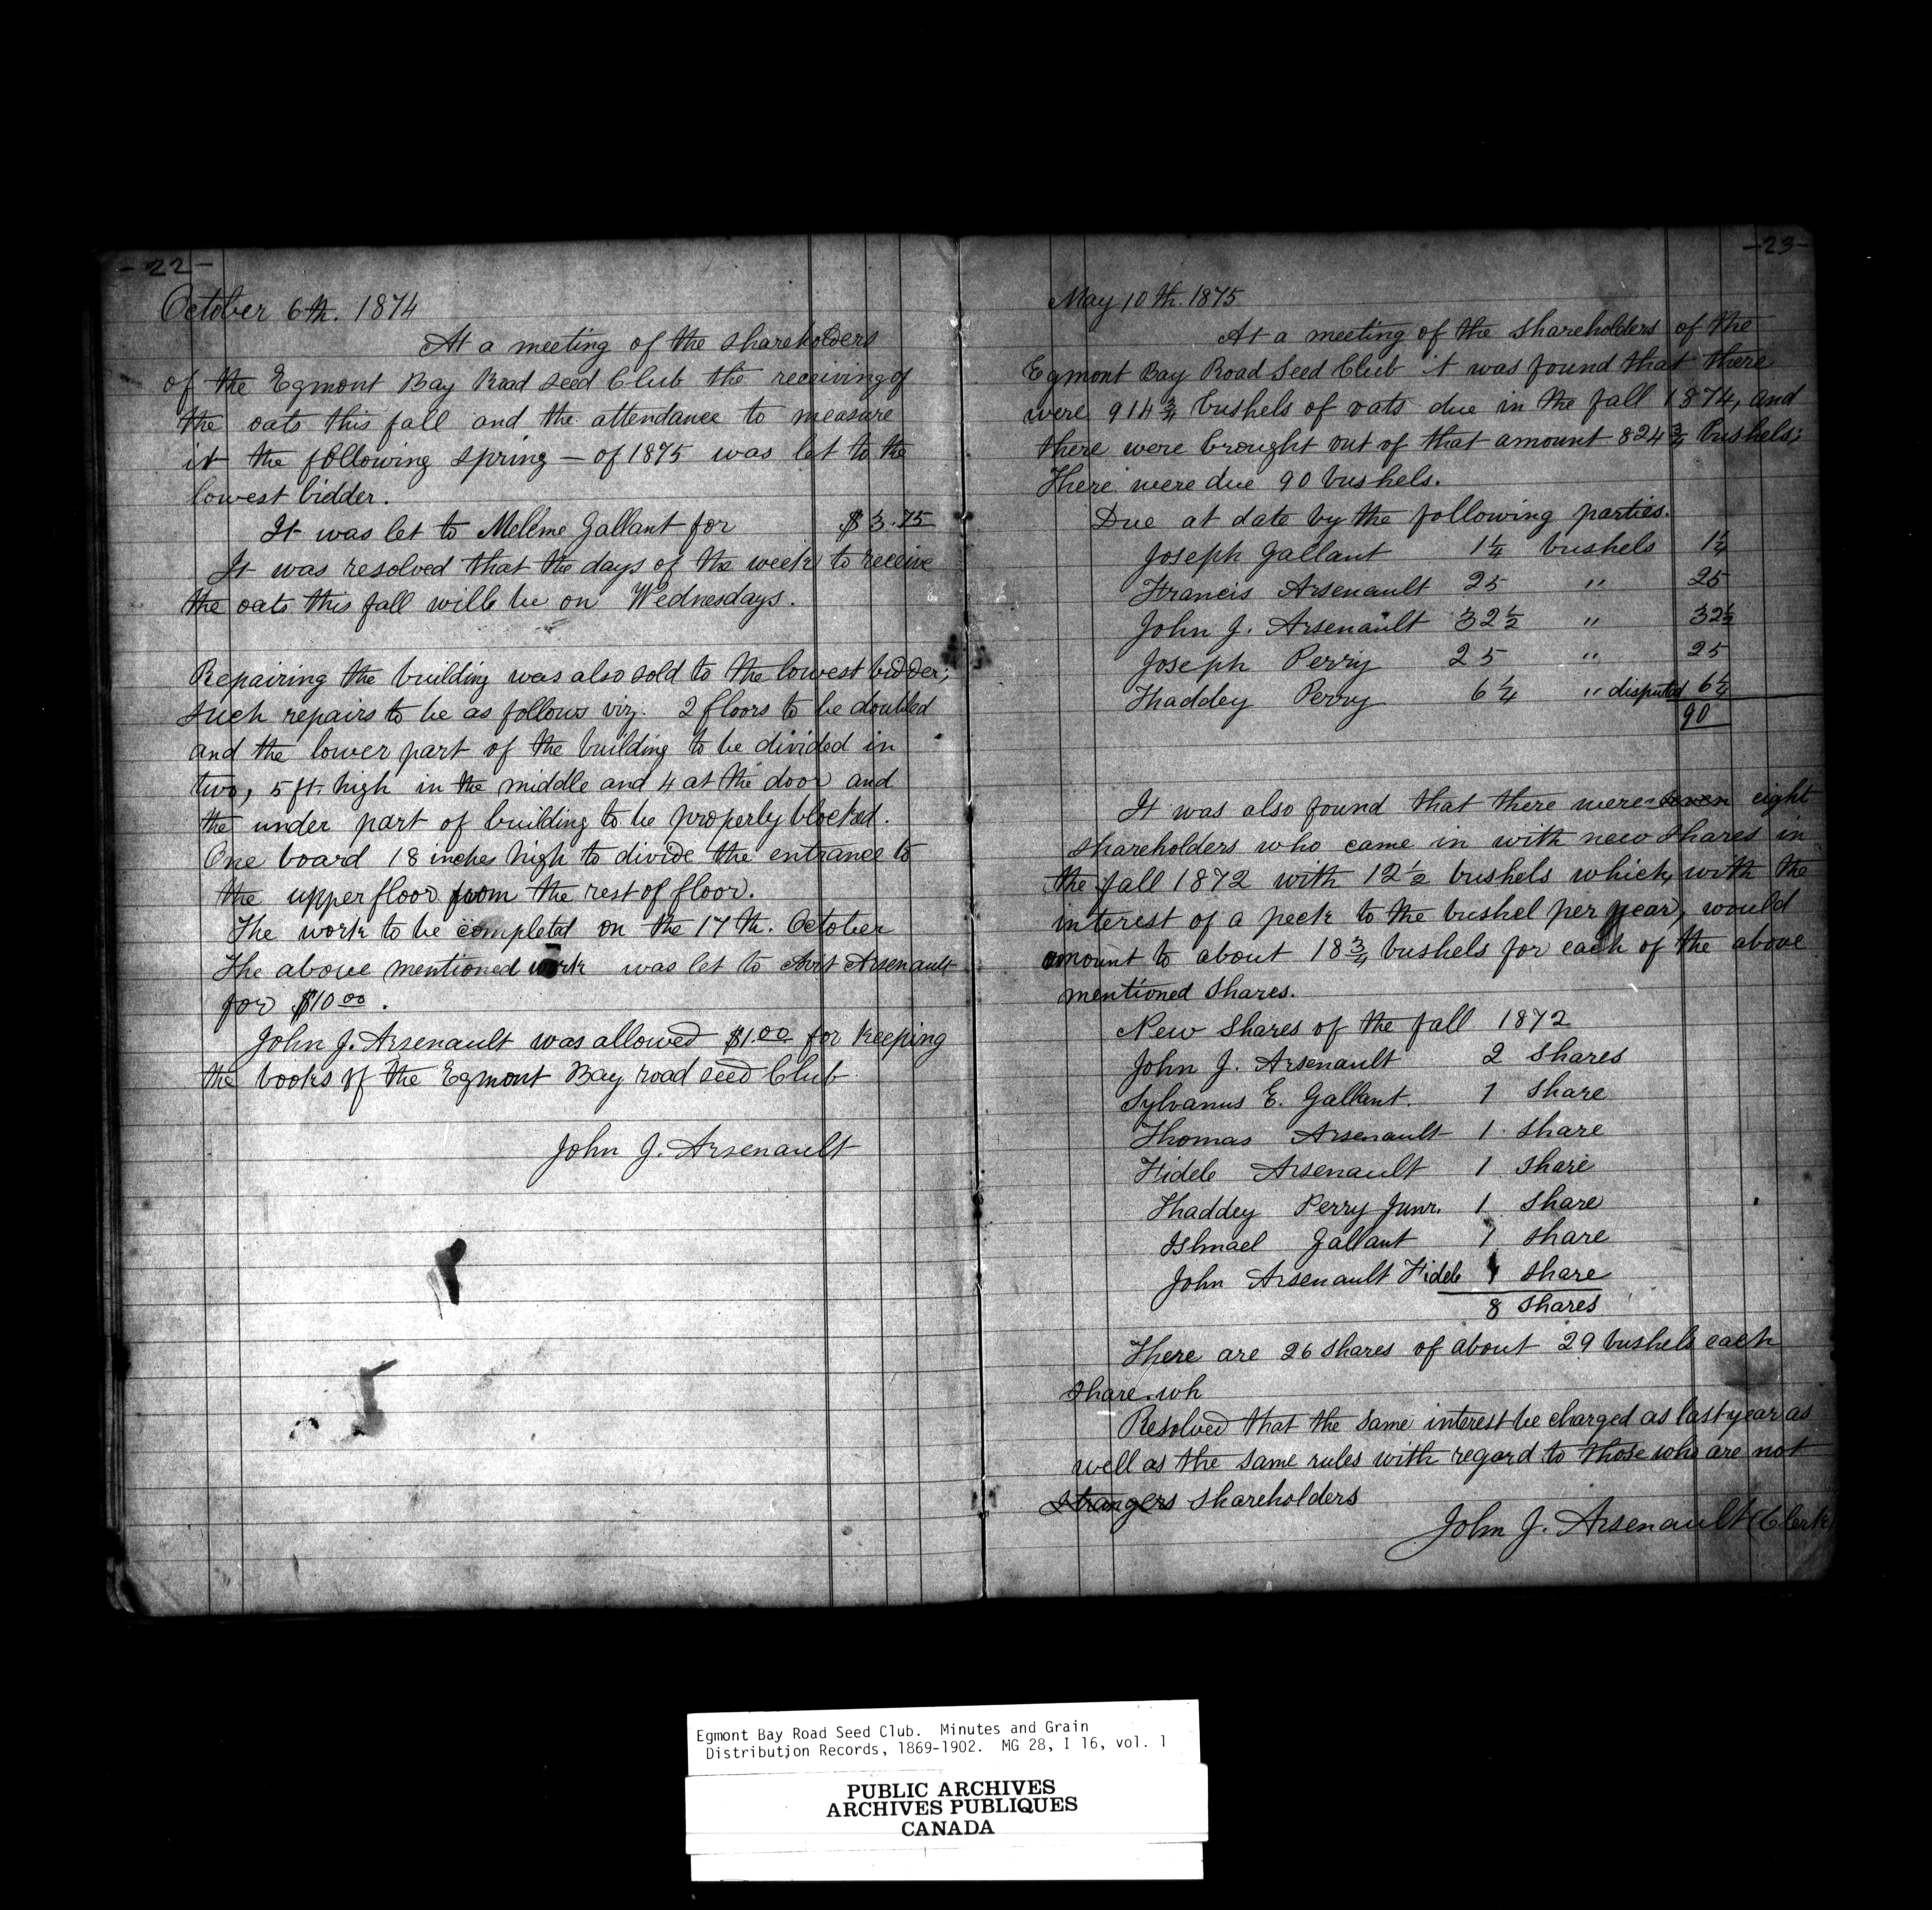 - 22 -
October 6th. 1874
At a meeting of the shareholders
of the Egmont Bay Road Seed Club the receiving of
the oats this fall and the attendance to measure
it the following spring — of 1875 was let to the
lowest bidder.
It was let to Meleme Gallant for $3.75
It was resolved that the days of the week to receive
the oats this fall will be on Wednesdays.
Repairing the building was also sold to the lowest bidder;
such repairs to be as follows viz. 2 floors to be doubled
and the lower part of the building to be divided in
two, 5 ft. high in the middle and 4 at the door and
the under part of building to be properly blocked.
One board 18 inches high to divide the entrance to
the upper floor from the rest of floor.
The work to be completed on the 17th. October
The above mentioned work was let to Arsenault
for $10.00.
John J. Arsenault was allowed $1.00 for keeping
the books of the Egmont Bay road seed Club
John J. Arsenault
- 23 -
May 10th. 1875
At a meeting of the shareholders of the
Egmont Bay Road Seed Club it was found that there
were 914 3/4 bushels of oats due in the fall 1874, and
there were brought out of that amount 824 3/4 bushels;
There were due 90 bushels.
Due at date by the following parties.
Joseph Gallant 1 1/4 bushels 1 1/4
Francis Arsenault 25 " 25
John J. Arsenault 32 1/2 " 32 1/2
Joseph Perry 25 " 25
Thaddey Perry 6 1/4 " disputed 6 1/4
90
It was also found that there were seven eight
shareholders who came in with new shares in
the fall 1872 with 12 1/2 bushels which, with the
interest of a peck to the bushel per year, would
amount to about 18 3/4 bushels for each of the above
mentioned shares.
New Shares of the fall 1872
John J. Arsenault 2 Shares
Sylvanus E. Gallant. 1 Share
Thomas Arsenault 1. Share
Fidele Arsenault 1 Share
Thaddey Perry Junr. 1 Share
Ishmael Gallant 1 Share
John Arsenault Fidele 1 Share
8 Shares
There are 26 shares of about 29 bushels each
share. wh
Resolved that the same interest be charged as last year as
well as the same rules with regard to those who are not
Strangers shareholders
John J. Arsenault (Clerk)
Egmont Bay Road Seed Club. Minutes and Grain
Distribution Records, 1869-1902. MG 28, I 16, vol. 1
PUBLIC ARCHIVES
ARCHIVES PUBLIQUES
CANADA